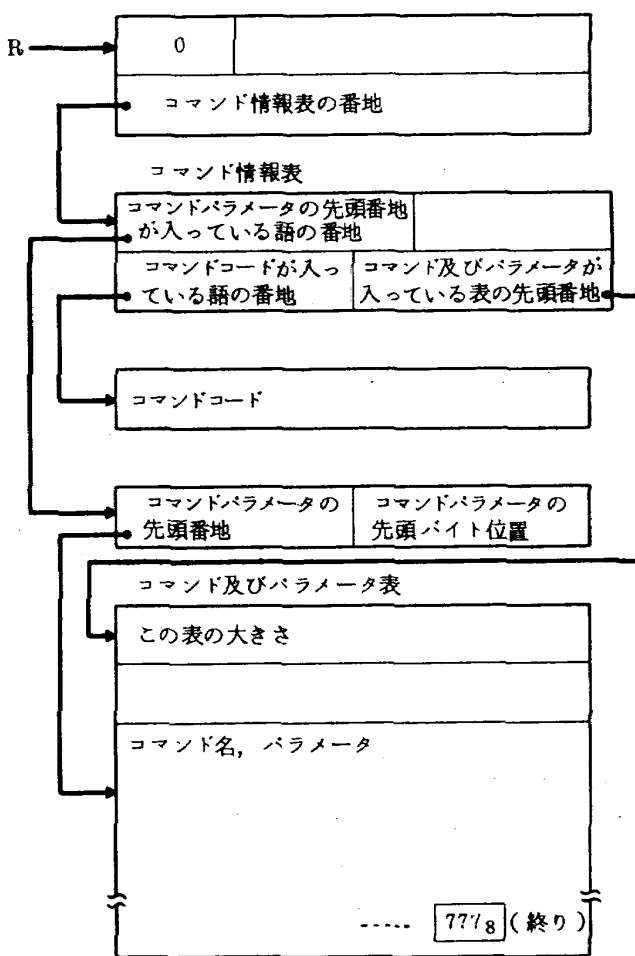 R
0
コマンド情報表の番地
コマンド情報表
コマンドパラメータの先頭番地
が入っている語の番地
コマンドコードが入っ
ている語の番地
コマンド及びパラメータが
入っている表の先頭番地
コマンドコード
コマンドパラメータの
先頭番地
コマンドパラメータの
先頭バイト位置
コマンド及びパラメータ表
この表の大きさ
コマンド名, パラメータ
..... 777₈ (終り)